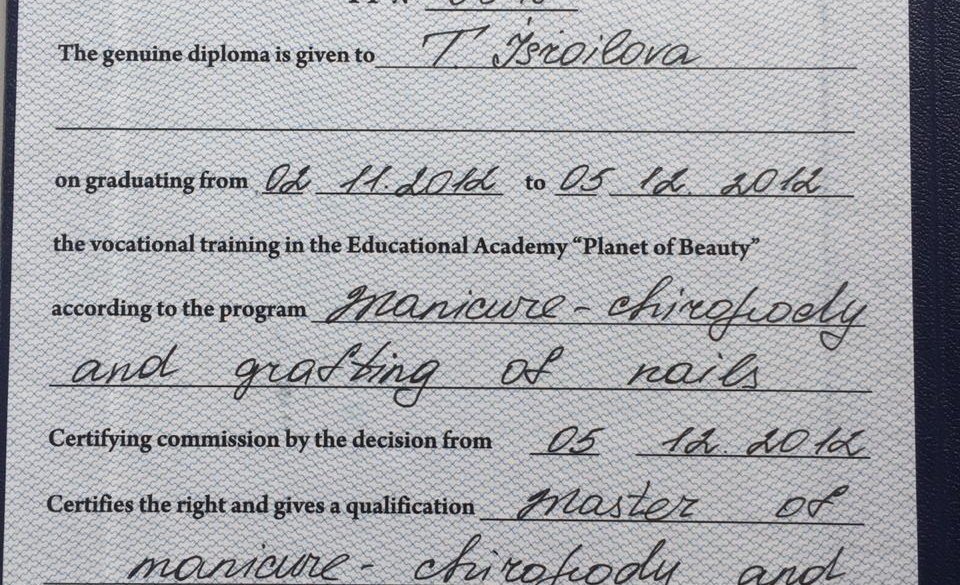 The genuine diploma is given to T. Isroilova
on graduating from 02 11.2012 to 05 12. 2012
the vocational training in the Educational Academy “Planet of Beauty”
according to the program manicure - chiropody
and grafting of nails
Certifying commission by the decision from 05 12. 2012
Certifies the right and gives a qualification master of
manicure - chiropody and